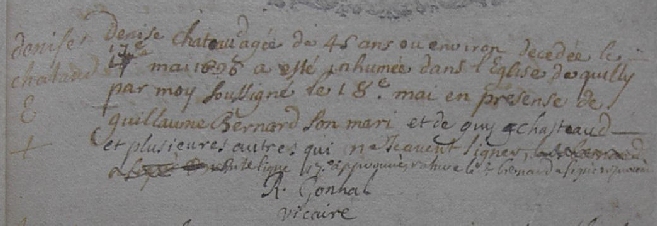 denise denise chataud agée de 45 ans ou environ decedée le
chataud 17e mai 1698 a esté inhumée dans l'Eglise de quilly
E par moy soussigné le 18e mai en presense de
guillaume Bernard son mari et de guy chasteaud
et plusieures autres qui ne scavent signer,
17e approuvé
R. Gonhal
vicaire